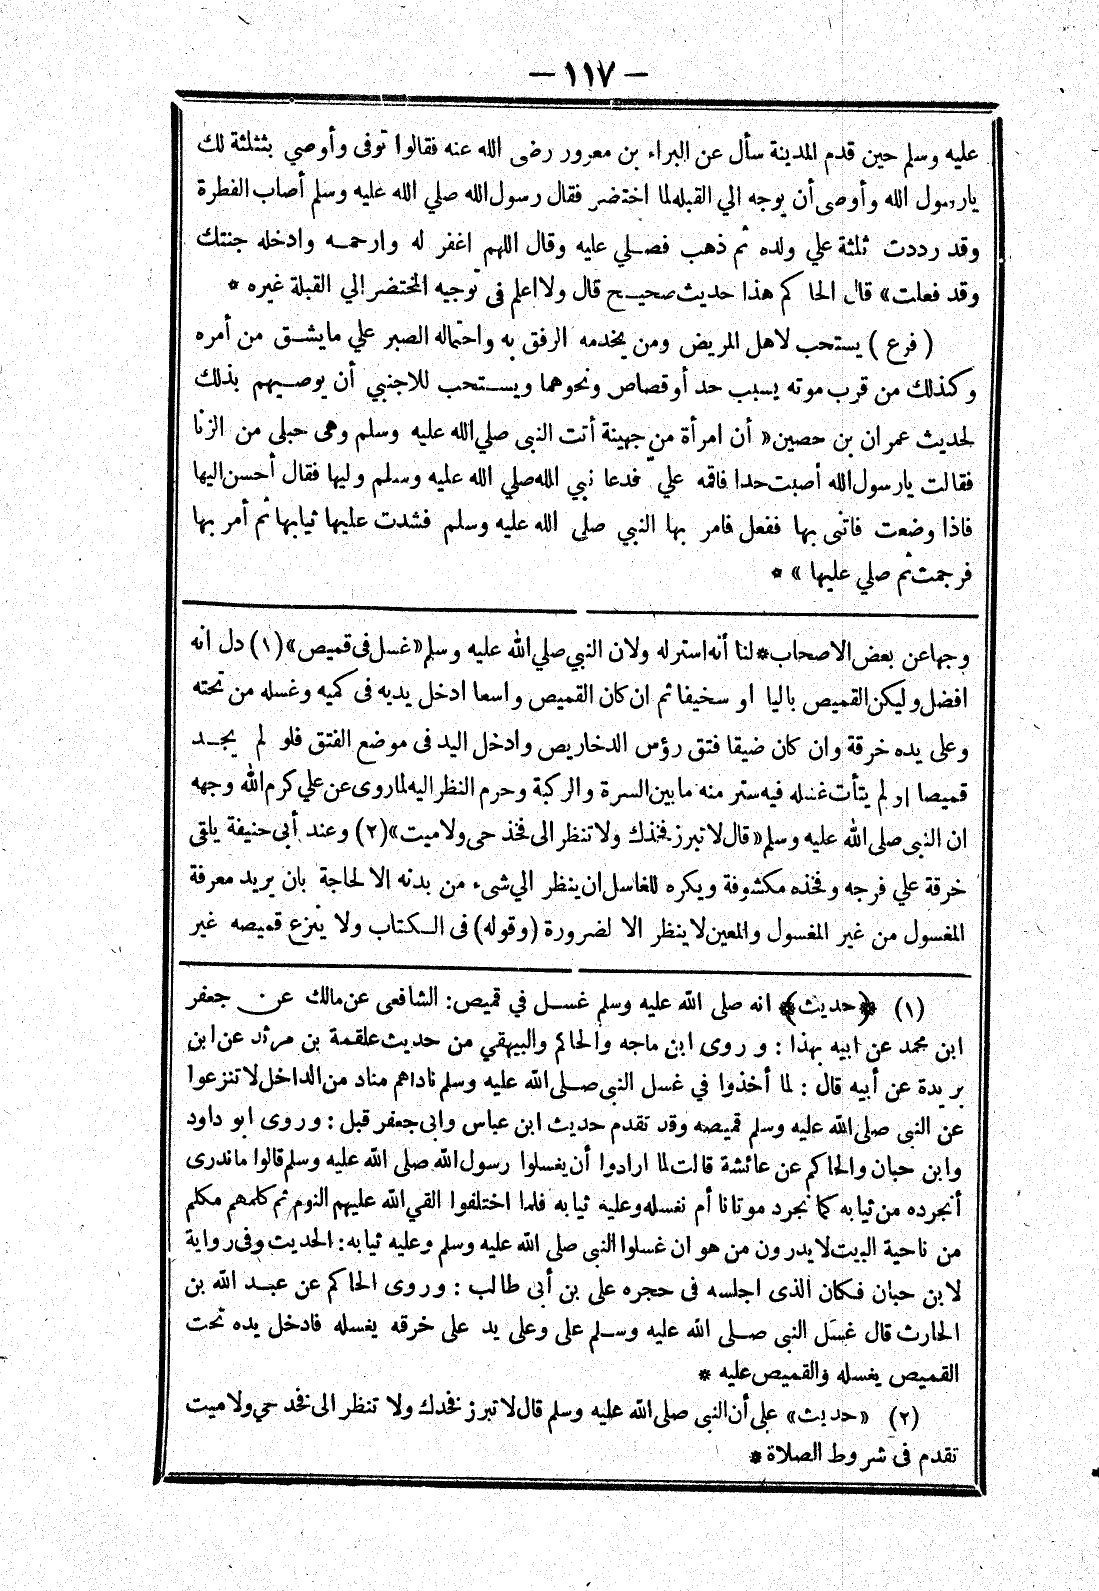 — ١١٧ —
عليه وسلم حين قدم المدينة سأل عن البراء بن معرور رضى الله عنه فقالوا توفى وأوصي بثلثة لك
يارسول الله وأوصى أن يوجه الي القبله لما اختضر فقال رسول الله صلي الله عليه وسلم أصاب الفطرة
وقد رددت ثلثة علي ولده ثم ذهب فصلي عليه وقال اللهم اغفر له وارحمه وادخله جنتك
وقد فعلت» قال الحاكم هذا حديث صحيح قال ولا اعلم فى توجيه المختضر الي القبلة غيره *
(فرع) يستحب لاهل المريض ومن يخدمه الرفق به واحتماله الصبر علي مايشق من أمره
وكذلك من قرب موته بسبب حد أوقصاص ونحوهما ويستحب للاجنبي أن يوصيهم بذلك
لحديث عمران بن حصين «أن امرأة من جهينة أتت النبى صلي الله عليه وسلم وهى حبلى من الزنا
فقالت يارسول الله أصبت حدا فاقمه علي فدعا نبي الله صلي الله عليه وسلم وليها فقال أحسن اليها
فاذا وضعت فاتنى بها ففعل فامر بها النبي صلى الله عليه وسلم فشدت عليها ثيابها ثم أمر بها
فرجمت ثم صلي عليها» *
وجها عن بعض الاصحاب * لنا أنه استر له ولان النبي صلي الله عليه وسلم «غسل فى قميص» (١) دل انه
افضل وليكن القميص باليا او سخيفا ثم ان كان القميص واسعا ادخل يديه فى كميه وغسله من تحته
وعلى يده خرقة وان كان ضيقا فتق رؤس الدخاريص وادخل اليد فى موضع الفتق فلو لم يجد
قميصا او لم يتأت غسله فيه ستر منه ما بين السرة والركبة وحرم النظر اليه لما روى عن علي كرم الله وجهه
ان النبى صلى الله عليه وسلم «قال لا تبرز فخذك ولا تنظر الى فخذ حى ولا ميت» (٢) وعند أبى حنيفة يلقى
خرقة علي فرجه وفخذه مكشوفة ويكره للغاسل ان ينظر الي شىء من بدنه الا لحاجة بان يريد معرفة
المغسول من غير المغسول والمعين لا ينظر الا لضرورة (وقوله) فى الكتاب ولا ينزع قميصه غير
(١) ﴿حديث﴾ انه صلى الله عليه وسلم غسل في قميص: الشافعى عن مالك عن جعفر
ابن محمد عن ابيه بهذا: وروى ابن ماجه والحاكم والبيهقي من حديث علقمة بن مرثد عن ابن
بريدة عن أبيه قال: لما أخذوا في غسل النبى صلى الله عليه وسلم ناداهم مناد من الداخل لا تنزعوا
عن النبى صلى الله عليه وسلم قميصه وقد تقدم حديث ابن عباس وابى جعفر قبل: وروى ابو داود
وابن حبان والحاكم عن عائشة قالت لما ارادوا أن يغسلوا رسول الله صلى الله عليه وسلم قالوا ماندرى
أنجرده من ثيابه كما نجرد موتانا أم نغسله وعليه ثيابه فلما اختلفوا القي الله عليهم النوم ثم كلمهم مكلم
من ناحية البيت لا يدرون من هو ان غسلوا النبى صلى الله عليه وسلم وعليه ثيابه: الحديث وفى رواية
لابن حبان فكان الذى اجلسه فى حجره على بن أبى طالب: وروى الحاكم عن عبد الله بن
الحارث قال غسَل النبى صلى الله عليه وسلم على وعلى يد على خرقه يغسله فادخل يده تحت
القميص يغسله والقميص عليه *
(٢) «حديث» علي أن النبى صلى الله عليه وسلم قال لا تبرز فخدك ولا تنظر الى فخد حي ولا ميت
تقدم فى شروط الصلاة *